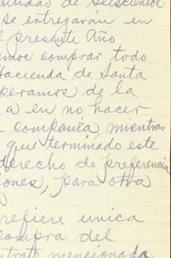 de Seiscientos
se entregarán en
presente Año
comprar todo
Hacienda de Santa
peramos de la
a en no hacer
compañia mientras
que terminado este
derecho de preferencia
ones, para otra
refiere unica
compra del
mencionada